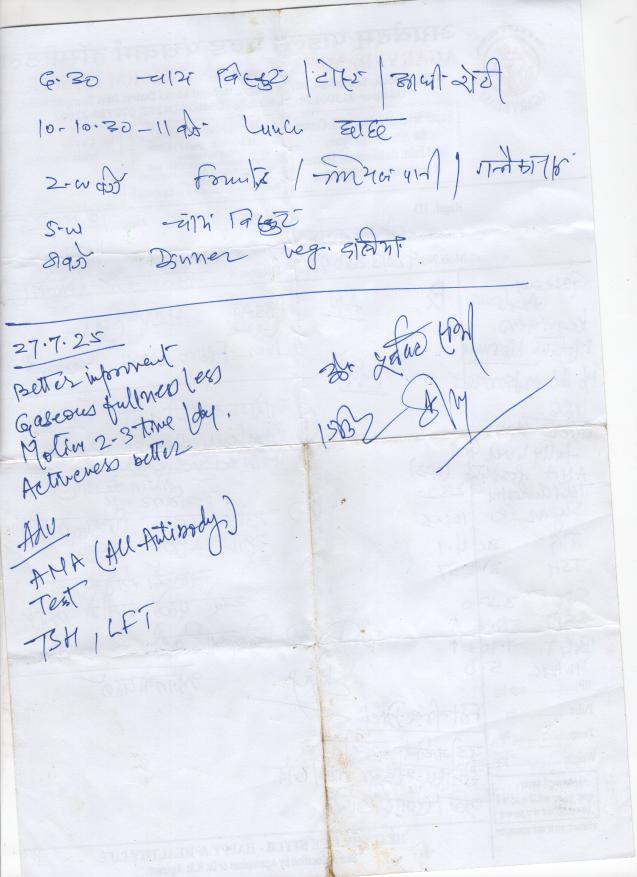 ६.३० चाय बिस्कुट / टोस्ट / आधी रोटी
10-10.30-11 को Lunch छाछ
2-W को Fruits / नारियल पानी /
5-W चाय बिस्कुट
8 को Dinner veg. दलिया
27.7.25
Better improvment
Gaseous fullness less
Motion 2-3 time/day.
Activeness better
Adv
AMA (All Antibody)
Test
TSH, LFT
डॉ.